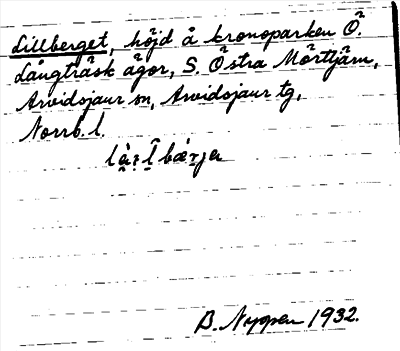 Lillberget, höjd å kronoparken Ö.
Långträsk ägor, S. Östra Mörttjärn,
Arvidsjaur sn, Arvidsjaur tg,
Norrb. l.
B. Nyppen 1932.